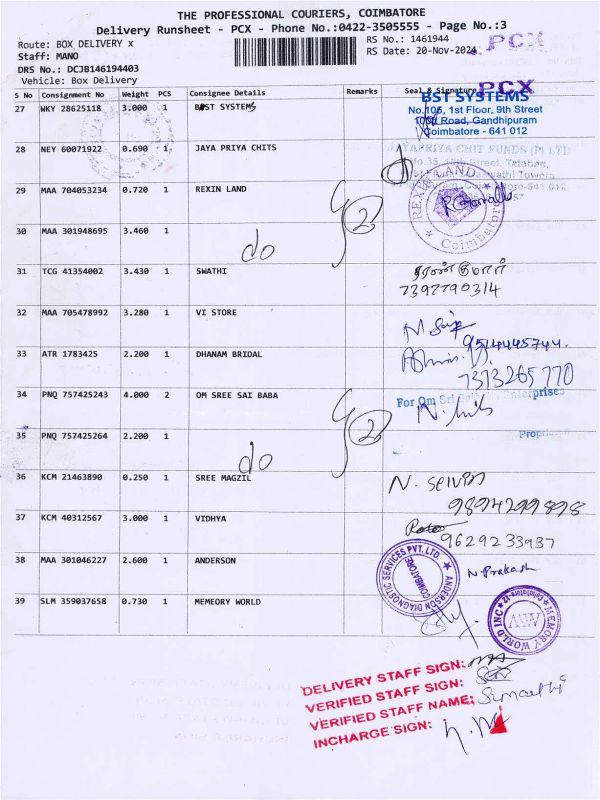 THE PROFESSIONAL COURIERS, COIMBATORE
Delivery Runsheet - PCX - Phone No.:0422-3505555 - Page No.:3
Route: BOX DELIVERY x
RS No.: 1461944
PCX
Staff: MANO
RS Date: 20-Nov-2024
DRS No.: DCJB146194403
Vehicle: Box Delivery
PCX
S No Consignment No Weight PCS Consignee Details Remarks Seal & Signature
27 WKY 28625118 3.000 1 BEST SYSTEMS
BST SYSTEMS
No.105, 1st Floor, 9th Street
100ft Road, Gandhipuram
Coimbatore - 641 012
28 NEY 60071922 0.690 1 JAYA PRIYA CHITS
JAYAPRIYA CHIT FUNDS (P) LTD
29 MAA 704053234 0.720 1 REXIN LAND
REXIN LAND
Coimbatore
2
30 MAA 301948695 3.460 1
do
31 TCG 41354002 3.430 1 SWATHI
சரண்குமார்
7392790314
32 MAA 705478992 3.280 1 VI STORE
9514445744
33 ATR 1783425 2.200 1 DHANAM BRIDAL
7373265770
34 PNQ 757425243 4.000 2 OM SREE SAI BABA
For Om Sri Enterprises
2
35 PNQ 757425264 2.200 1
do
36 KCM 21463890 0.250 1 SREE MAGZIL
N. Selvin
9894299898
37 KCM 40312567 3.000 1 VIDHYA
9629233937
38 MAA 301046227 2.600 1 ANDERSON
ANDERSON DIAGNOSTIC SERVICES PVT. LTD.
COIMBATORE
N. Prakash
39 SLM 359037658 0.730 1 MEMEORY WORLD
MEMORY WORLD INC
Coimbatore-12
MW
DELIVERY STAFF SIGN:
VERIFIED STAFF SIGN:
VERIFIED STAFF NAME: Sumathi
INCHARGE SIGN: